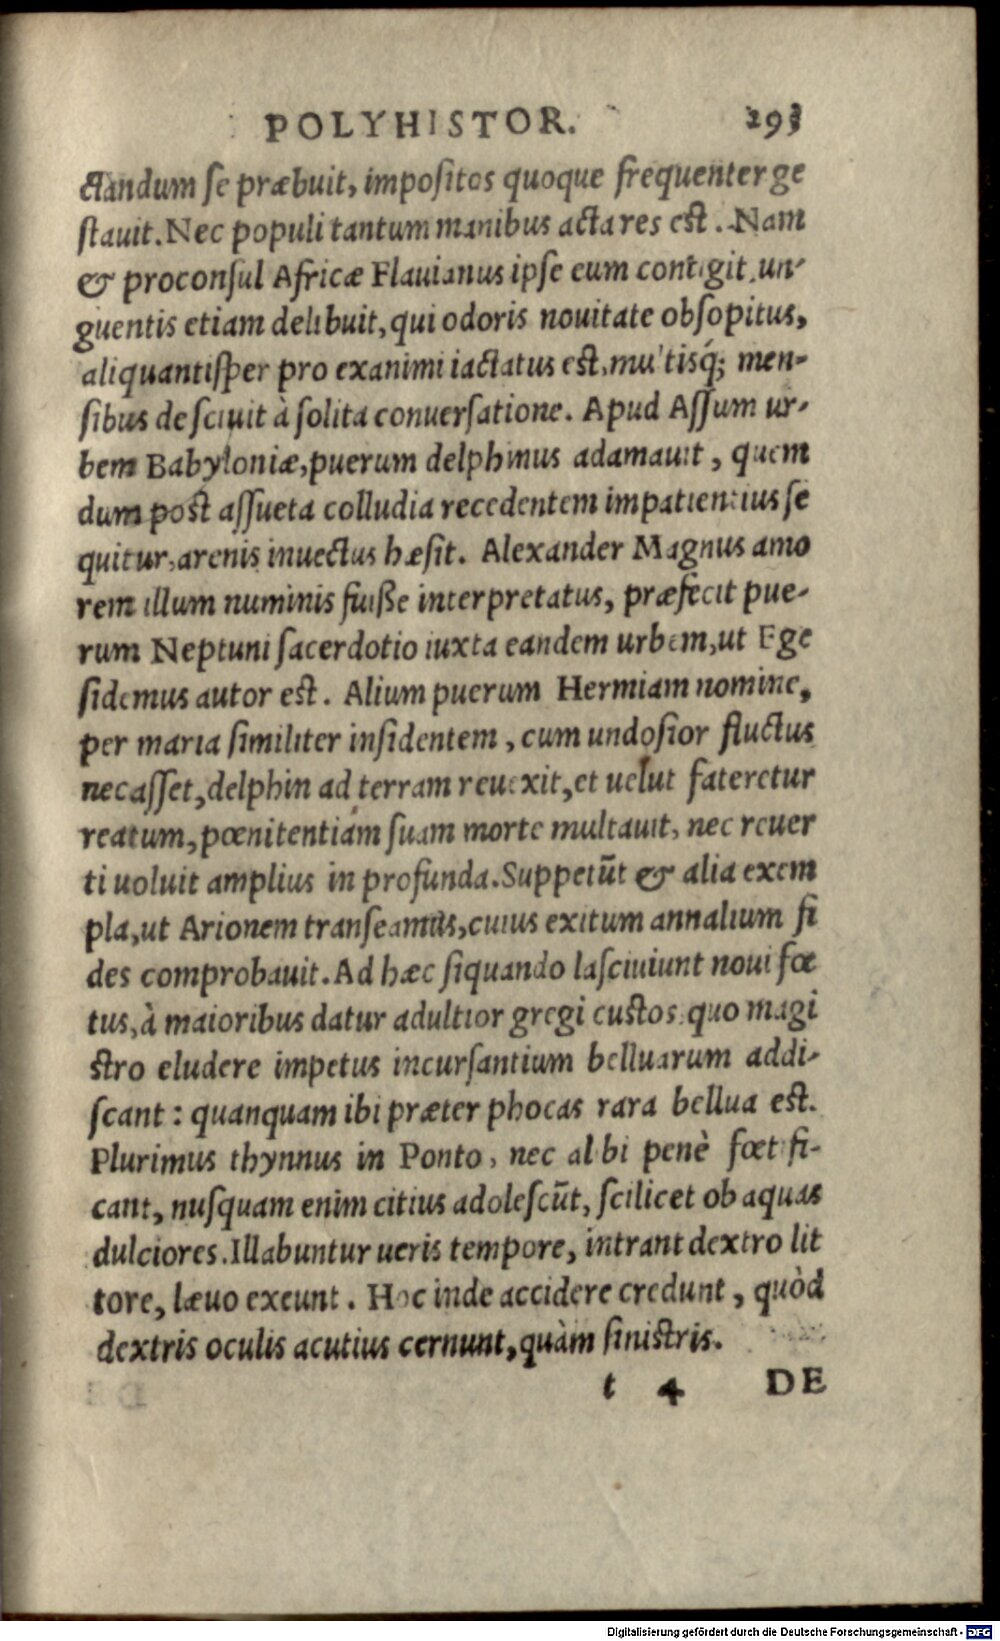 POLYHISTOR. 293
ctandum se præbuit, impositos quoque frequenter ge
stauit. Nec populi tantum manibus acta res est. Nam
& proconsul Africæ Flauianus ipse eum contigit, un-
guentis etiam delibuit, qui odoris nouitate obsopitus,
aliquantisper pro exanimi iactatus est, multisq́; men-
sibus desciuit à solita conuersatione. Apud Assum ur-
bem Babyloniæ, puerum delphinus adamauit, quem
dum post assueta colludia recedentem impatientius se
quitur, arenis inuectus hæsit. Alexander Magnus amo
rem illum numinis fuiße interpretatus, præfecit pue-
rum Neptuni sacerdotio iuxta eandem urbem, ut Ege
sidemus autor est. Alium puerum Hermiam nomine,
per maria similiter insidentem, cum undosior fluctus
necasset, delphin ad terram reuexit, et uelut fateretur
reatum, pœnitentiam suam morte multauit, nec reuer
ti uoluit amplius in profunda. Suppetūt & alia exem
pla, ut Arionem transeamus, cuius exitum annalium fi
des comprobauit. Ad hæc siquando lasciuiunt noui fœ
tus, à maioribus datur adultior gregi custos, quo magi
stro eludere impetus incursantium belluarum addi-
scant: quanquam ibi præter phocas rara bellua est.
Plurimus thynnus in Ponto, nec alibi penè fœtifi-
cant, nusquam enim citius adolescūt, scilicet ob aquas
dulciores. Illabuntur ueris tempore, intrant dextro lit
tore, læuo exeunt. Hoc inde accidere credunt, quòd
dextris oculis acutius cernunt, quàm sinistris.
t 4 DE
Digitalisierung gefördert durch die Deutsche Forschungsgemeinschaft - DFG